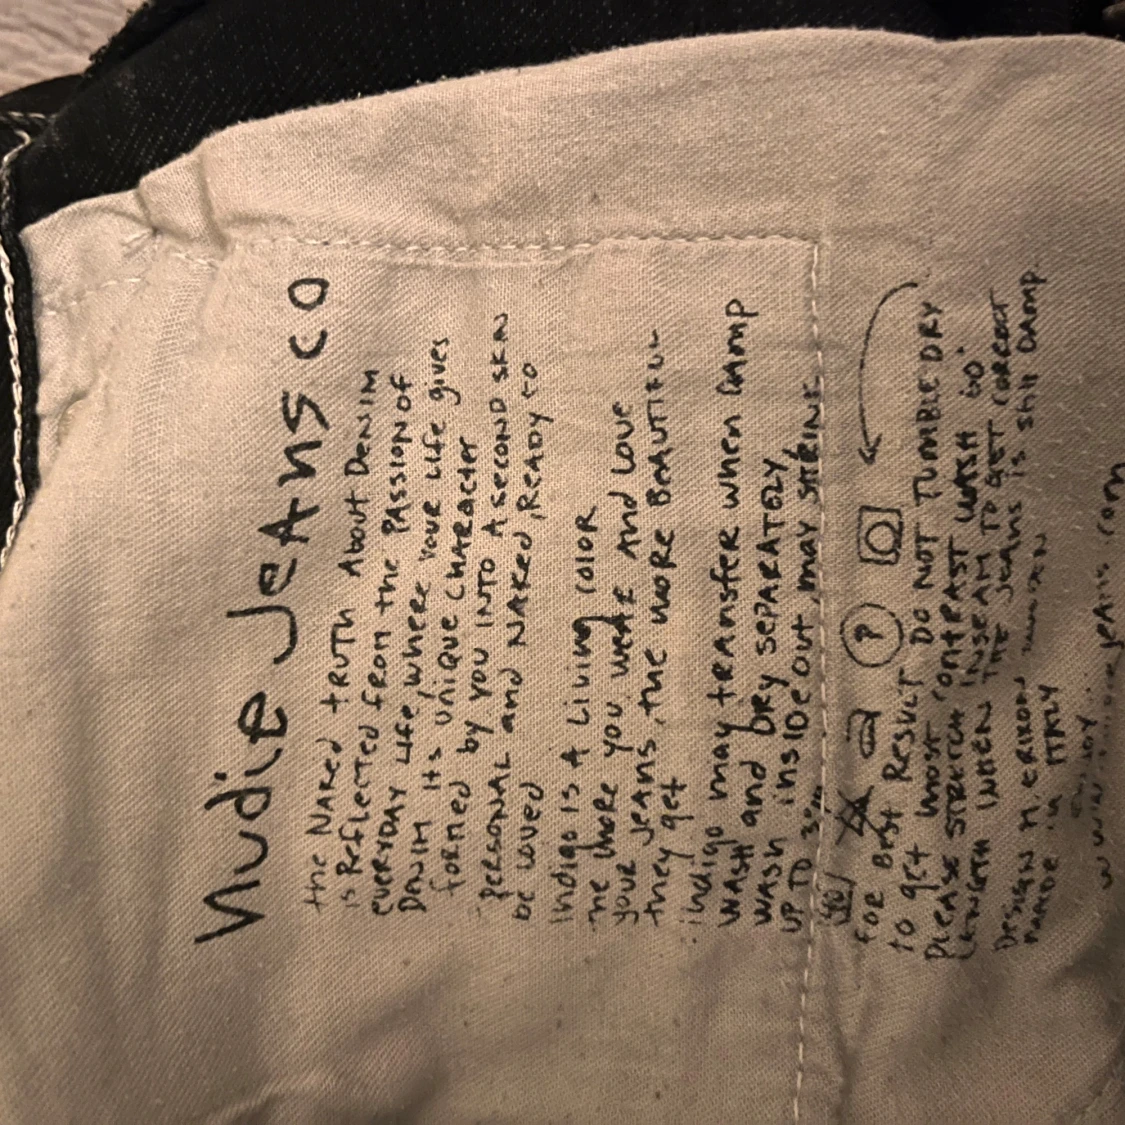 Nudie Jeans co
the NAKED tRUTH About DENIM
is Reflected from the PASSION of
EVERYDAY LIFE, WHERE YOUR LIFE gives
DENIM its UNIQUE CHARACTER
formed by YOU INTO A SECOND SKN
PERSONAL and NAKED, READY to
be LOVED
Indigo IS A Living COLOR
the more you WEAR AND LOVE
your Jeans, the MORE BEAUTIFUL
they get
indigo may transfer when DAMP
WASH and DRY SEPARATELY
WASH insIDE out, may SHRINK
UP TO 3%
40 P
FOR BEST RESULT DO NOT TUMBLE DRY
to get most CONTRAST WASH 60°
PLEASE STRETCH INSEAM TO GET CORRECT
LENGTH WHEN THE JEANS is still DAMP
DESIGN M ERIXON
MADE in ITALY
ENJOY
jeans com